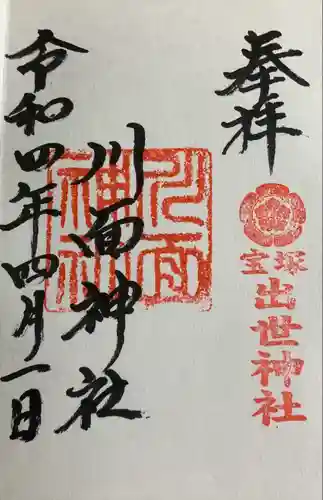 奉拝
宝塚
出世神社
川面神社
川面
神社
令和四年四月一日